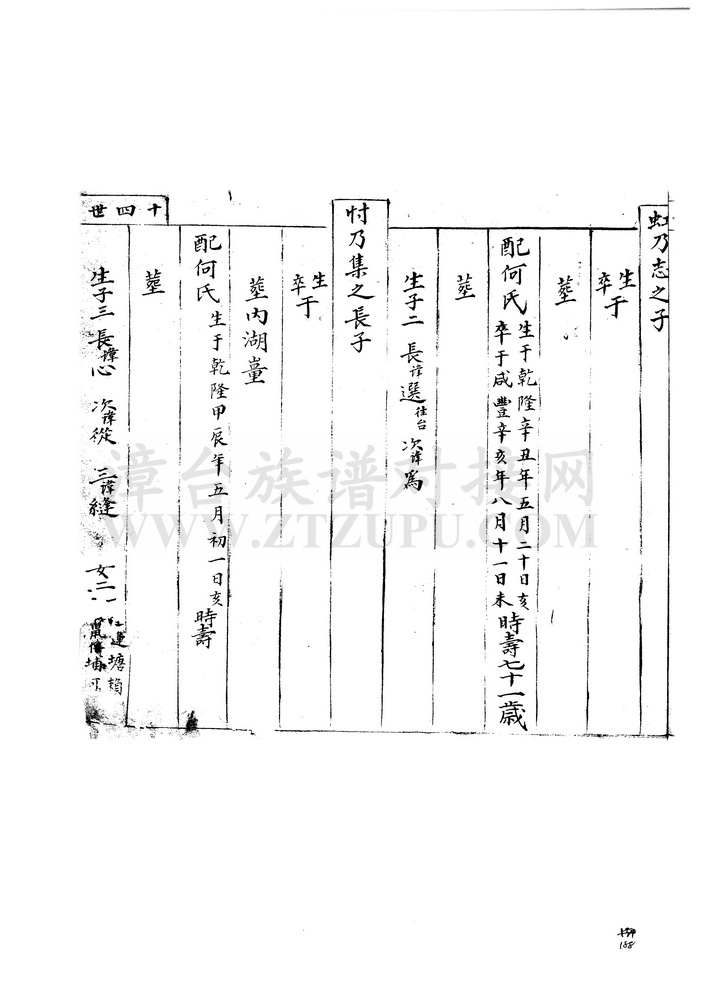 虹乃志之子
生于
卒
塟
配何氏 生于乾隆辛丑年五月二十日亥
卒于咸豐辛亥年八月十一日未 時壽七十一歲
塟
生子二 長諱選往台 次諱寫
忖乃集之長子
生于
卒
塟內湖崀
配何氏 生于乾隆甲辰年五月初一日亥 時壽
塟
十四世
生子三 長諱心 次諱從 三諱縫 女二
塘賴
漳台族谱对接网
WWW.ZTZUPU.COM
168